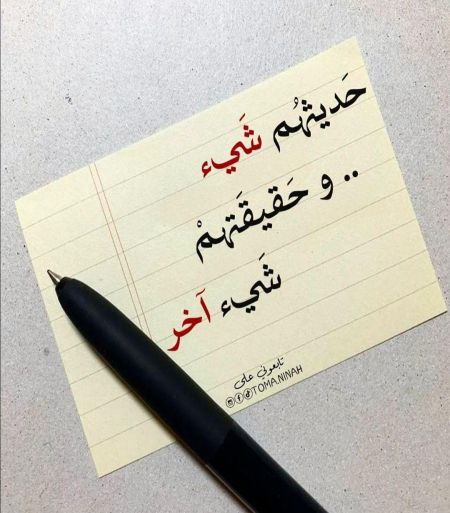 حَديثهُم شَيء
.. و حَقيقَتهمْ
شَيء آخر
تابعوني على
@TOMA.NINAH